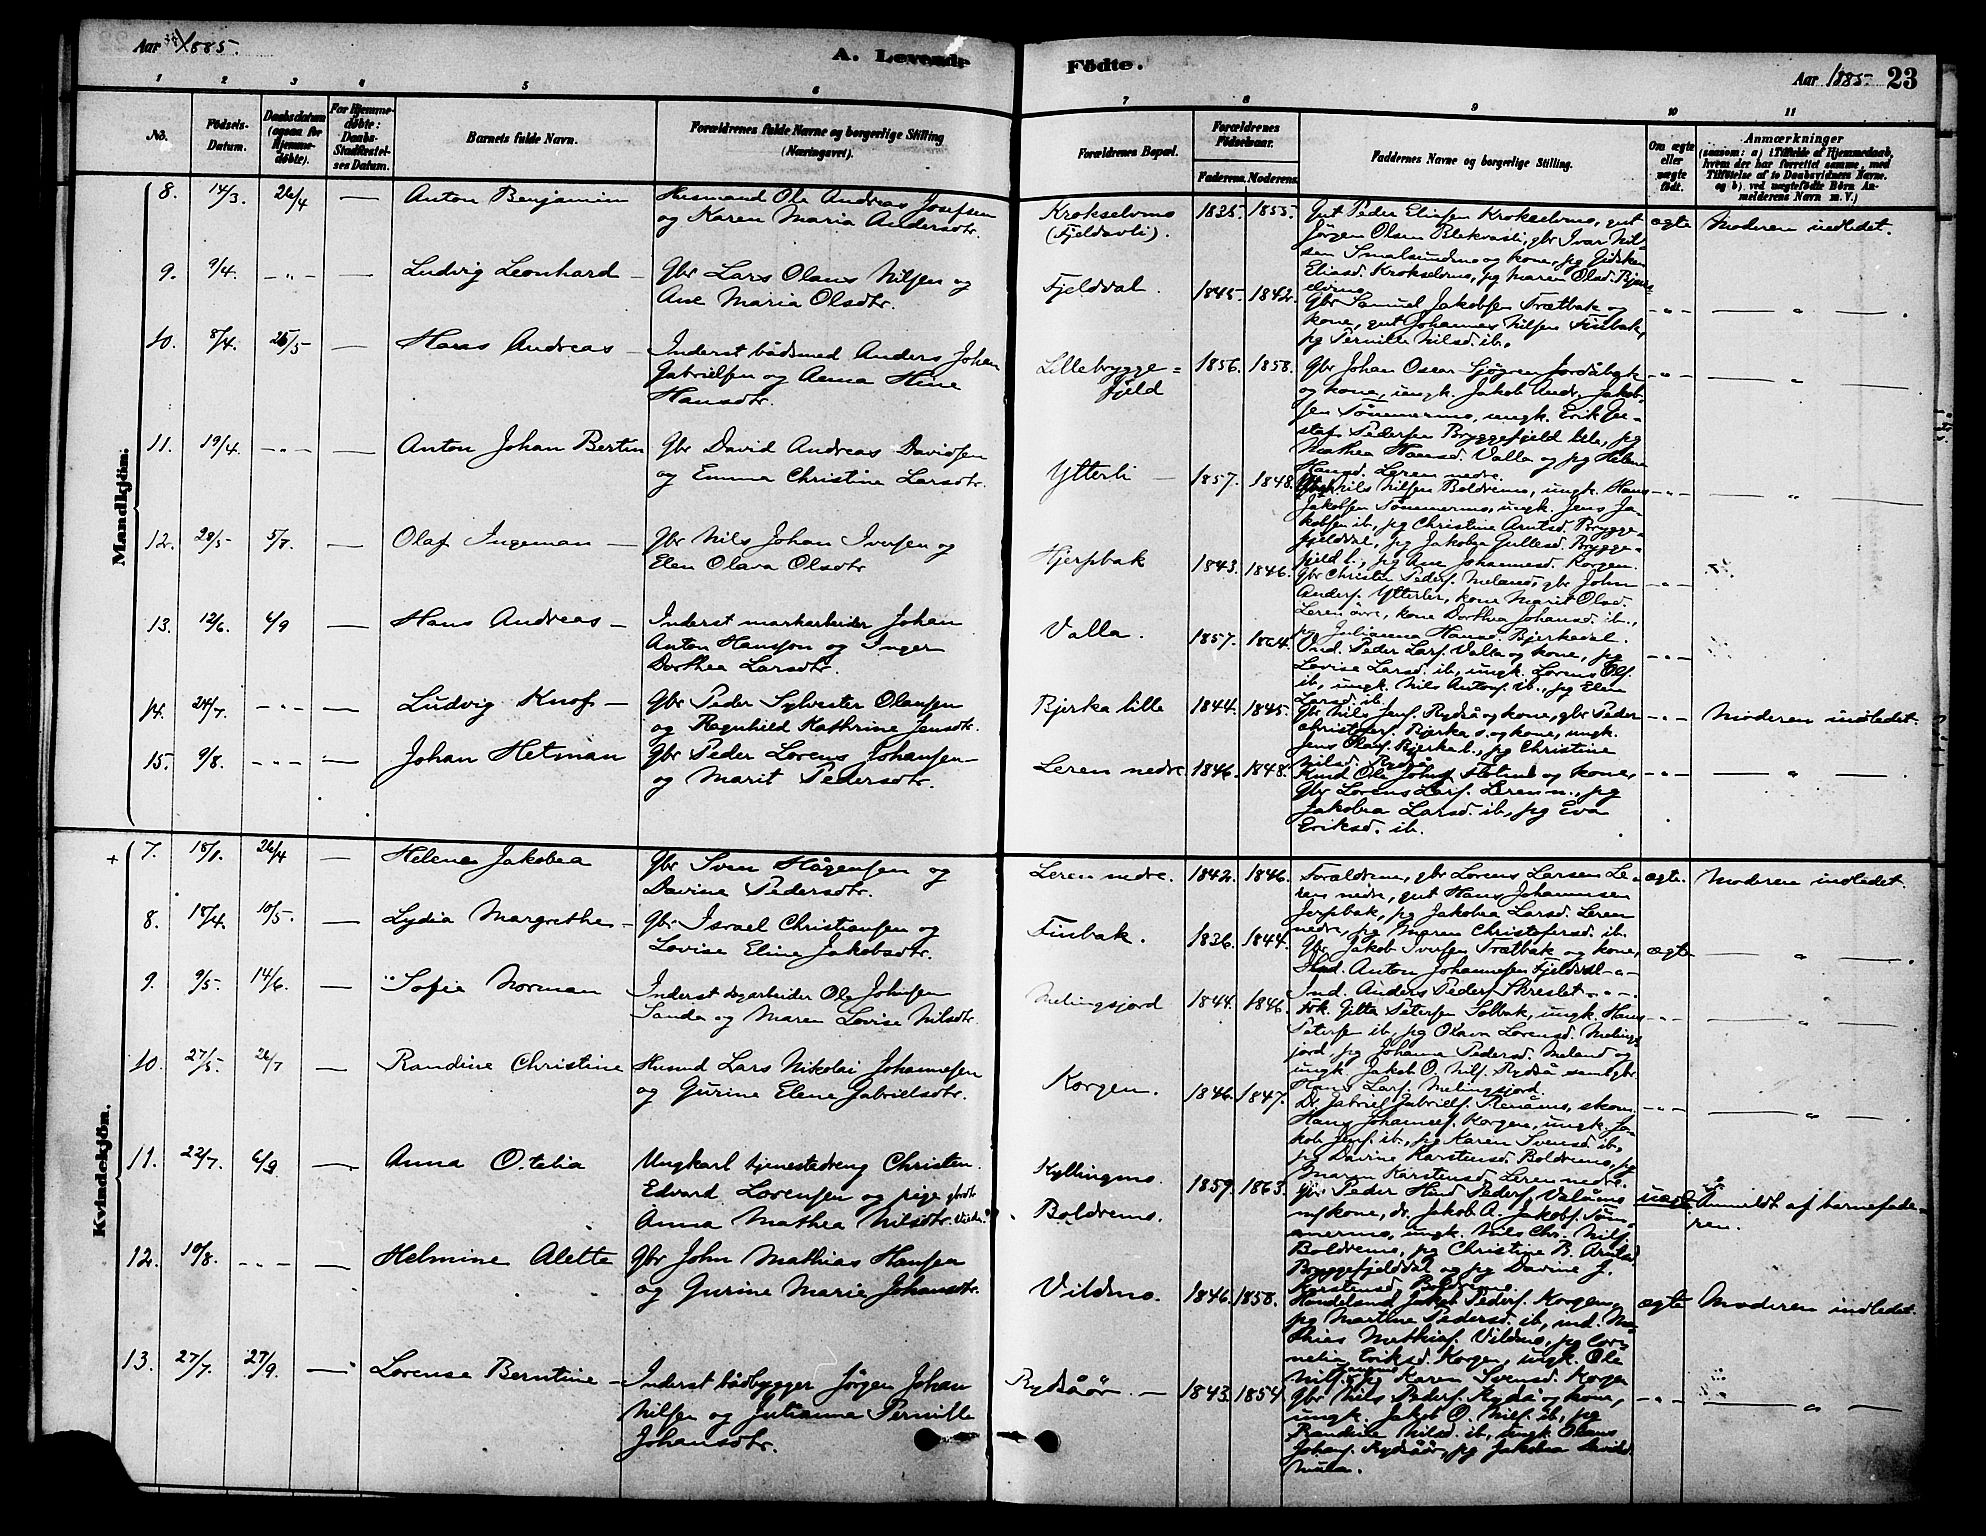 Aar 1885.
A. Levende
Födte.
Aar 1885
23
1 2 3 4 5 6
7 8 9 10 11
No.
Födsels-
Datum.
Daabsdatum
(ogsaa for
Hjemme-
døbte).
For Hjemme-
døbte:
Daabs-
Stadfæstel-
ses Datum.
Barnets fulde Navn.
Forældrenes fulde Navne og borgerlige Stilling
(Næringsvei).
Forældrenes Bopæl.
Forældrenes
Födselsaar.
Faderens. Moderens.
Faddernes Navne og borgerlige Stilling.
Om ægte
eller
uægte
födt.
Anmærkninger
(saasom: a) i Tilfælde af Hjemmedaab,
hvem der har forrettet samme, med
Tilföielse af to Daabsvidners Navne.
og b) ved uægtefödte Börn An-
melderens Navn m. V.)
Mandkjön.
8. 14/3. 26/4 — Anton Benjamin
Husmand Ole Andreas Josefsen
og Karen Maria Andersdtr.
Krokselvmo
(Fjeldavli).
1835. 1855.
Gut Peder Eliesen Krokselvmo, gut
Jørgen Olsen Blekvasli, gbr Ivar Nil-
sen Smalsundmo og kone, pg
Eliasd. Krokselvmo, pg Maren Olsd.
ægte
Moderen indledet.
9. 9/4. -"- — Ludvig Leonhard —
Gbr Lars Olaus Nilsen og
Ane Maria Olsdtr.
Fjelddal.
1845. 1842.
Gbr Samuel Jakobsen Trætbak og
kone, gut Johannes Nilsen Finbak,
pg Pernille Nilsd. ib.
-"-
— " —
10. 8/4. 25/5 — Hans Andreas —
Inderst bådsmed Anders Johan
Gabrielsen og Anna Hine
Hansdtr.
Lillebrygge=
fjeld
1856. 1858.
Gbr Johan Oscar Sjøgren Jordåbak
og kone, ungk. Jakob Andr. Jakob-
sen Tømmermo, ungk. Erik Gu-
staf Pedersen Bryggefjeld lille, pg
Mathea Hansd. Valla og pg Helene
Hansd. Leren nedre.
-"-
— " —
11. 19/4. -"- — Anton Johan Bertin
Gbr David Andreas Davidsen
og Emma Christine Larsdtr.
Ytterli —
1857. 1848.
Gbr Nils Nilsen Boldremo, ungk. Hans
Jakobsen Tømmermo, ungk. Jens Ja-
kobsen ib, pg Christine Arntsd. Brygge-
fjelddal, pg Jakobea Gullesd. Brygge-
fjeld l., pg Ane Johannesd. Korgen.
-"-
— " —
12. 28/5- 5/7. — Olaf Ingeman —
Gbr Nils Johan Iversen og
Elen Olava Olsdtr
Hjerpbak
1843. 1846.
Gbr Christen Peders. Meland, gbr John
Anders. Ytterler, kone Marit Olsd.
Leren øvre, kone Dorthea Johansd. ib.,
pg Julianna Hansd. Bjerkadal.
-"-
13. 12/6. 6/9 — Hans Andreas —
Inderst markarbeider Johan
Anton Hansson og Inger
Dorthea Larsdtr.
Valla.
1857. 1864.
Ind. Peder Lars. Valla og kone, pg
Lovise Larsd. ib, ungk. Lorens Ols.
ib, ungk. Nils Antons. ib., pg Elen
Larsd. ib.
-"-
14. 24/7. -"- — Ludvig Knof —
Gbr Peder Sylvester Olausen
og Ragnhild Kathrine Jensdtr.
Bjerka lille
1844. 1845.
Gbr Nils Jens. Rydså og kone, gbr Peder
Christofers. Bjerka s. og kone, ungk.
Jens Olaus. Bjerka l., pg Christine
Nilsd. Rydså
-"-
Moderen indledet.
15. 9/8. -"- — Johan Hetman
Gbr Peder Lorens Johansen —
og Marit Pedersdtr.
Leren nedre
1846. 1848.
Kmd Ole Johns. Flotind og kone,
Gbr Lorens Lars. Leren n., pg
Jakobea Larsd. ib, pg Eva
Eriksd. ib.
-"-
— " —
Kvindekjön.
+ 7. 18/1. 26/4 — Helene Jakobea
Gbr Sven Hågensen og
Davine Pedersdtr.
Leren nedre.
1842. 1846.
Forældrene, gbr Lorens Larsen Le-
ren nedre, gut Hans Johannsen
Jerpbak, pg Jakobea Larsd. Leren
nedre, pg Maren Christofersd. ib.
ægte.
Moderen indledet.
8. 18/4. 10/5. — Lydia Margrethe —
Gbr Israel Christiansen og
Lovise Eline Jakobsdtr.
Finbak.
1826. 1844.
Gbr Jakob Iversen Trætbak og kone,
Hmd. Anton Johannesen Fjelddal -"-
Ind. Anders Peders. Skreslet -"-
ægte
— " —
9. 9/5- 14/6. — Sofie Norman
Inderst dagarbeider Ole Johnsen
Sanda og Maren Lovise Nilsdtr.
Melingsjord
1844. 1846.
Frk. Gitta Petersen Solbak, ungk. Hans
Petersen ib, pg Olava Lorensd. Melings-
jord, pg Johanna Pedersd. Meland og
ungk. Jakob O. Nils. Rydså samt gbr
Hans Lars. Melingsjord.
-"-
— " —
10. 27/5- 26/7 — Randine Christine
Husmd Lars Nikolai Johannesen
og Gurine Elene Gabrielsdtr.
Korgen.
1846. 1847.
Dr. Gabriel Gabriels. Renåmo, skom.
Hans Johannes. Korgen, ungk. Ja-
kob Jens. ib., pg Karen Svensd. ib.,
pg Davine Karstensd. Boldremo, pg
Maren Karstensd. Leren nedre.
-"-
— " —
11. 22/7. 6/9 — Anna Otelia
Ungkarl tjenestedreng Christen
Edvard Lorensen og pige gbrdtr
Anna Mathea Nilsdtr.
Kyllingmo.
Boldremo.
1859. 1863.
Gbr Peder Hind Peders. Valåmo
m/kone, dr. Jakob A. Jakobs. Tøm-
mermo, ungk. Nils Chr. Nils.
Boldremo, pg Christine B. Arntsd.
Bryggefjelddal og pg Davine J.
Karstensd. Boldremo.
uægte
Anmeldt af barnefade-
ren.
12. 10/8. -"- — Helmine Alette
Gbr John Mathias Hansen
og Gurine Marie Johansdtr.
Vildmo.
1846. 1858.
Handelsmd Jakob Peders. Korgen,
pg Martine Pedersd. ib, ind. Ma-
thias Mathias. Vildmo, pg Cor-
nelia Eriksd. Korgen, ungk. Ole
Nils. pg Karen Svensd. Korgen
ægte
Moderen indledet.
13. 27/7. 27/9. — Lorense Berntine —
Inderst bådbygger Jørgen Johan
Nilsen og Julianna Pernille
Johansdtr.
Rydsåør. —
1843. 1854.
Gbr Nils Peders. Rydså og kone,
ungk. Jakob O. Nils. ib, pg
Randine Nilsd. ib, ungk Olaus
Johans. Rydsåør, pg Jakobea Davidsd.
Mula.
-"-
— " —